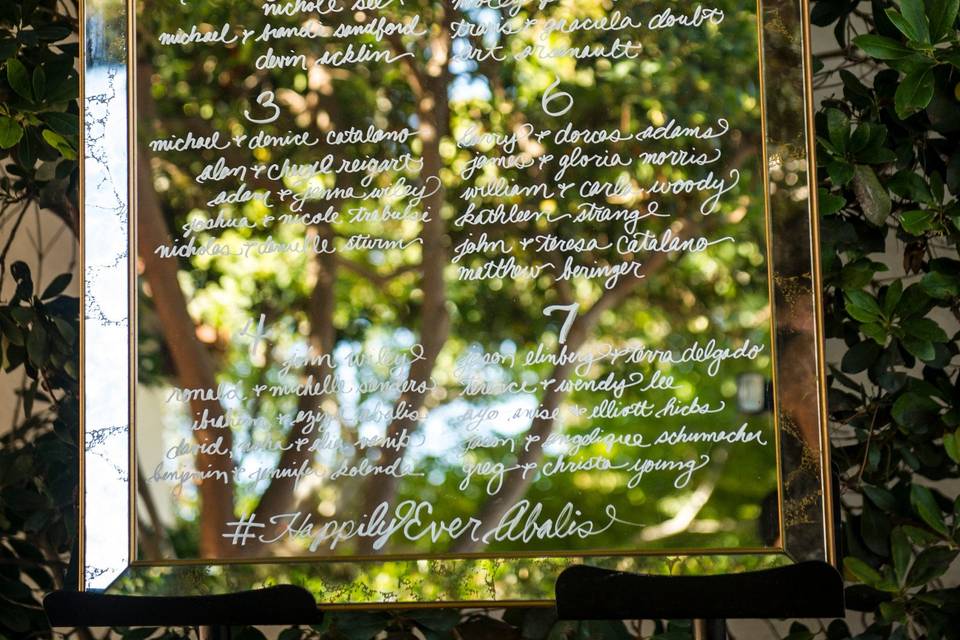 michael & brandi sandford
devin icklin
3
michael & denice catalano
alan & cheryl reigart
adam & jenna wiley
joshua & nicole trabulsi
nicholas & danielle sturm
4
john wiley
ronald & michelle sanders
ibrahim & abalis
david, &
benjamin & jennifer kolenda
travis & graciela doubt
arsenault
6
larry & dorcas adams
james & gloria morris
william & carla woody
kathleen strange
john & teresa catalano
matthew beringer
7
jason elinberg & terra delgado
& wendy lee
ayo, anise & elliott hicks
jason & angelique schumacher
greg & christa young
#HappilyEverAbalis